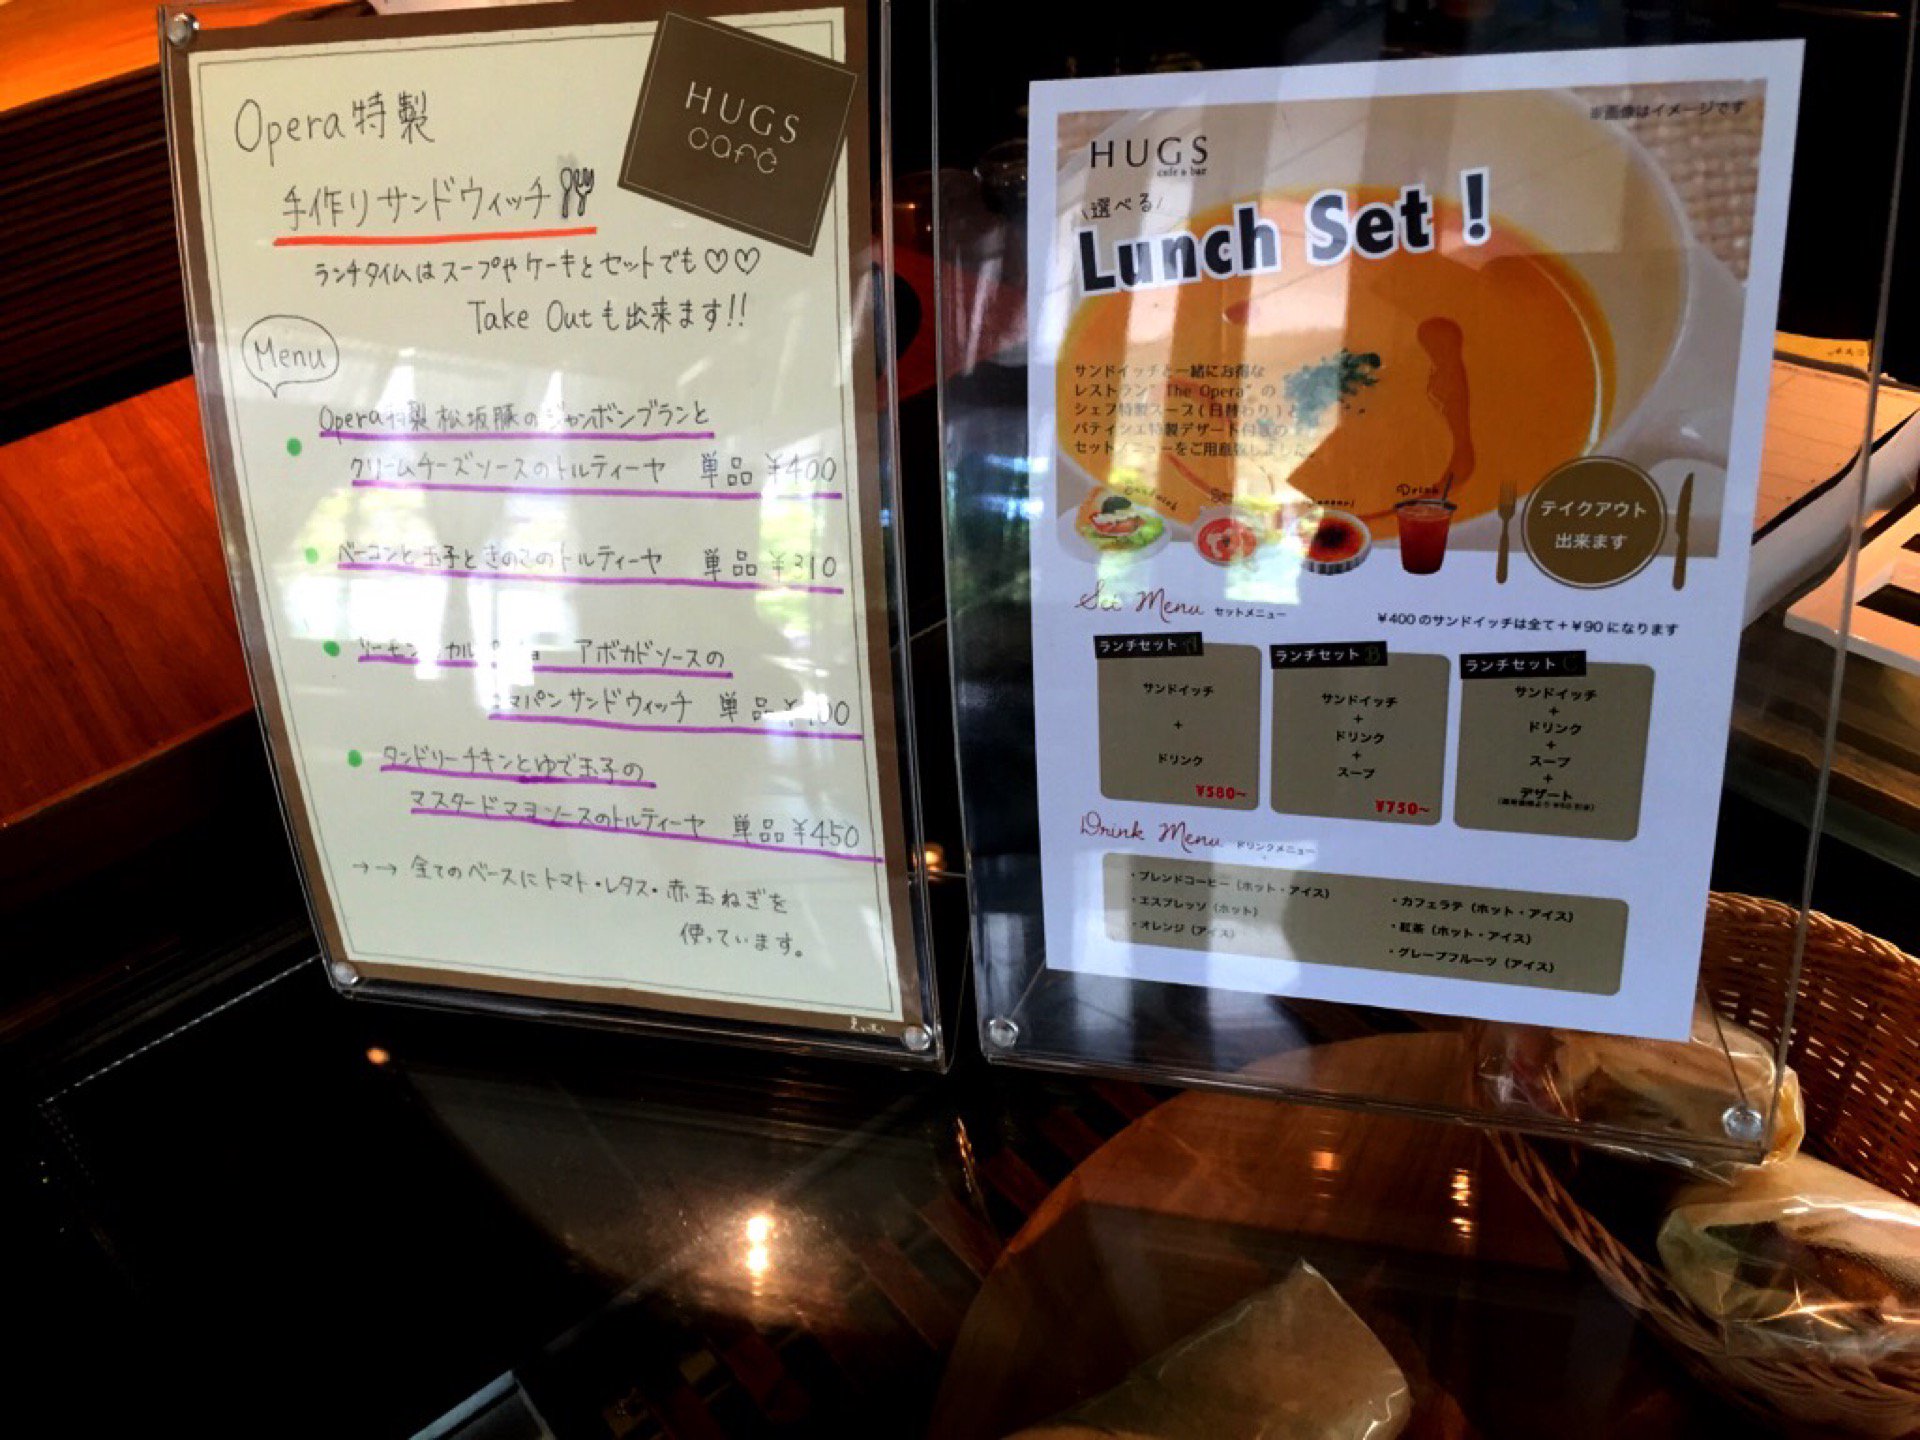 HUGS
café
Opera特製
手作りサンドウィッチ
ランチタイムはスープやケーキとセットでも♡♡
Take Outも出来ます!!
Menu
Opera特製 松坂豚のジャンボンブランと
クリームチーズソースのトルティーヤ 単品 ¥400
ベーコンと玉子ときのこのトルティーヤ 単品 ¥310
アボカドソースの
サンドウィッチ 単品
タンドリーチキンとゆで玉子の
マスタードマヨソースのトルティーヤ 単品 ¥450
→→ 全てのベースにトマト・レタス・赤玉ねぎを
使っています。
※画像はイメージです
HUGS
cafe & bar
\選べる/
Lunch Set !
サンドイッチと一緒にお得な
レストラン"The Opera"の
シェフ特製スープ(日替わり)と
パティシエ特製デザート付きの
セットメニューをご用意致しました。
Sandwich
Drink
テイクアウト
出来ます
Set Menu セットメニュー
¥400のサンドイッチは全て+¥90になります
ランチセット A
サンドイッチ
+
ドリンク
¥580~
ランチセット B
サンドイッチ
+
ドリンク
+
スープ
¥750~
ランチセット C
サンドイッチ
+
ドリンク
+
スープ
+
デザート
Drink Menu ドリンクメニュー
・ブレンドコーヒー（ホット・アイス）
・エスプレッソ（ホット）
・オレンジ（アイス）
・カフェラテ（ホット・アイス）
・紅茶（ホット・アイス）
・グレープフルーツ（アイス）